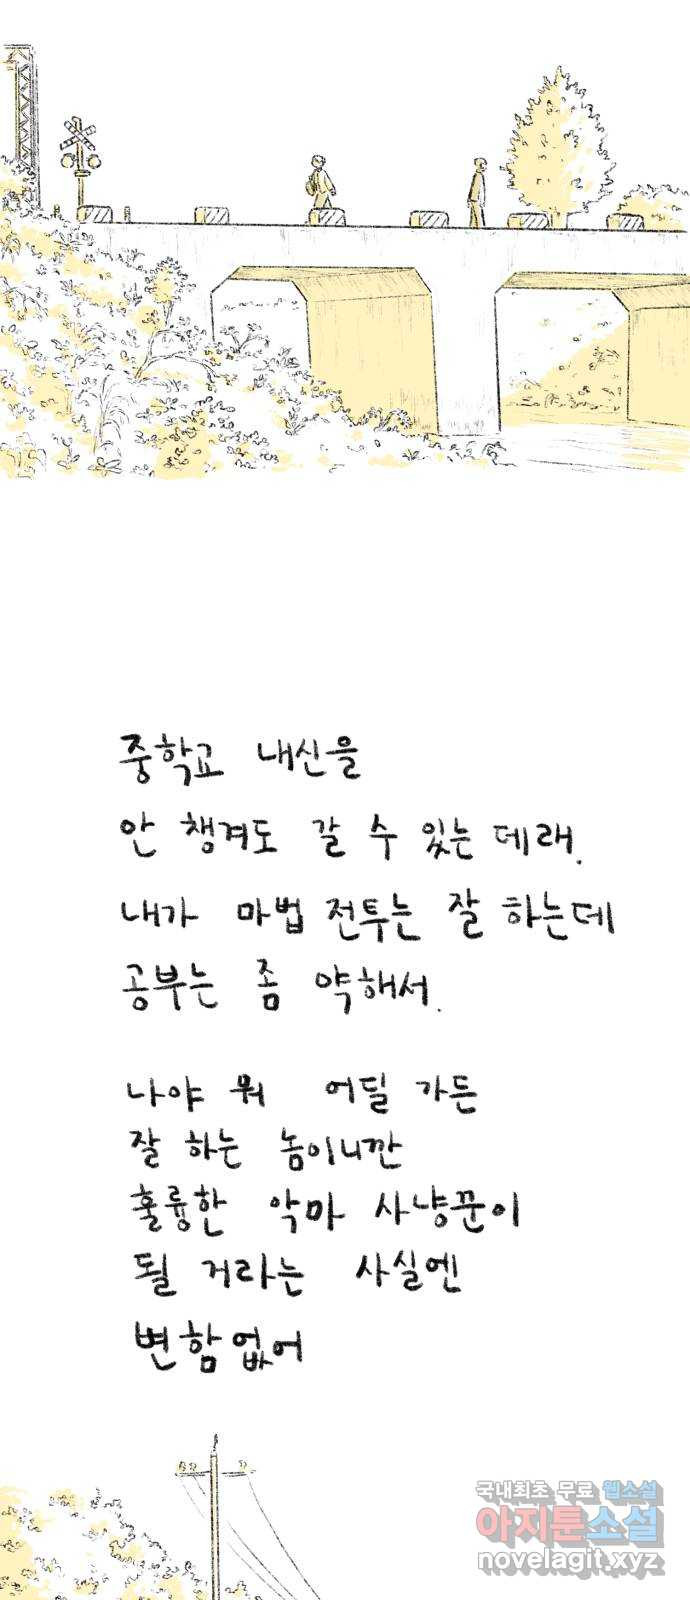 중학교 내신을
안 챙겨도 갈 수 있는 데래.
내가 마법 전투는 잘 하는데
공부는 좀 약해서.
나야 뭐 어딜 가든
잘 하는 놈이니깐
훌륭한 악마 사냥꾼이
될 거라는 사실엔
변함없어
국내최초 무료 웹소설
아지툰소설
novelagit.xyz